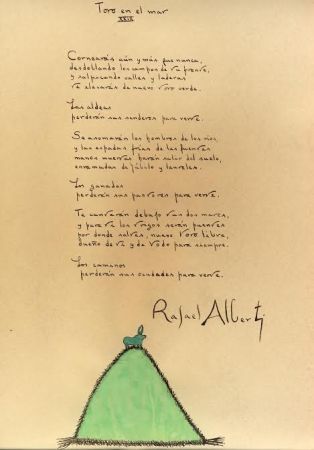 Toro en el mar
XXIX
Cornearás aún y más que nunca,
desdoblando los campos de tu frente,
y salpicando valles y laderas
te elevarás de nuevo toro verde.
Las aldeas
perderán sus senderos para verte.
Se asomarán los hombros de los ríos,
y las espadas frías de las fuentes
manos muertas harán salir del suelo,
enramadas de júbilo y laureles.
Los ganados
perderán sus pastores para verte.
Te cantarán debajo tus dos mares,
y para ti los trigos serán puentes
por donde saltes, nuevo toro libre,
dueño de ti y de todo para siempre.
Los caminos
perderán sus ciudades para verte.
Rafael Alberti